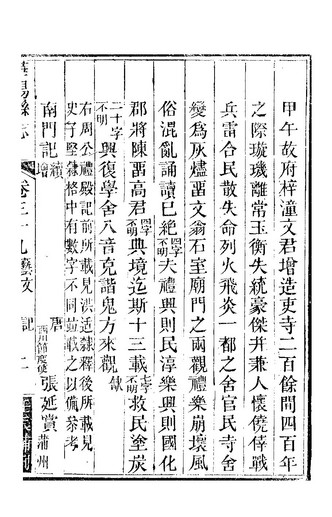 甲午故府梓潼文君增造吏寺二百餘間四百年
之際璇璣離常玉衡失統豪傑并兼人懷僥倖戰
兵雷合民散失命列火飛炎一都之舍官民寺舍
變為灰燼畱文翁石室廟門之兩觀禮樂崩壞風
俗混亂誦讀已絶四字不明夫禮興則民淳樂興則國化
郡將陳畱高君四字不明典境迄斯十三載七字不明救民塗炭
二十字不明興復學舍八音克諧鬼方來觀缺
右周公禮殿記前所載見洪适隸釋後所載見
史子堅隸格中有數字不同並載之以備參考
南門記續
唐西川節度使張延賞蒲州
卷三十九藝文 記 二